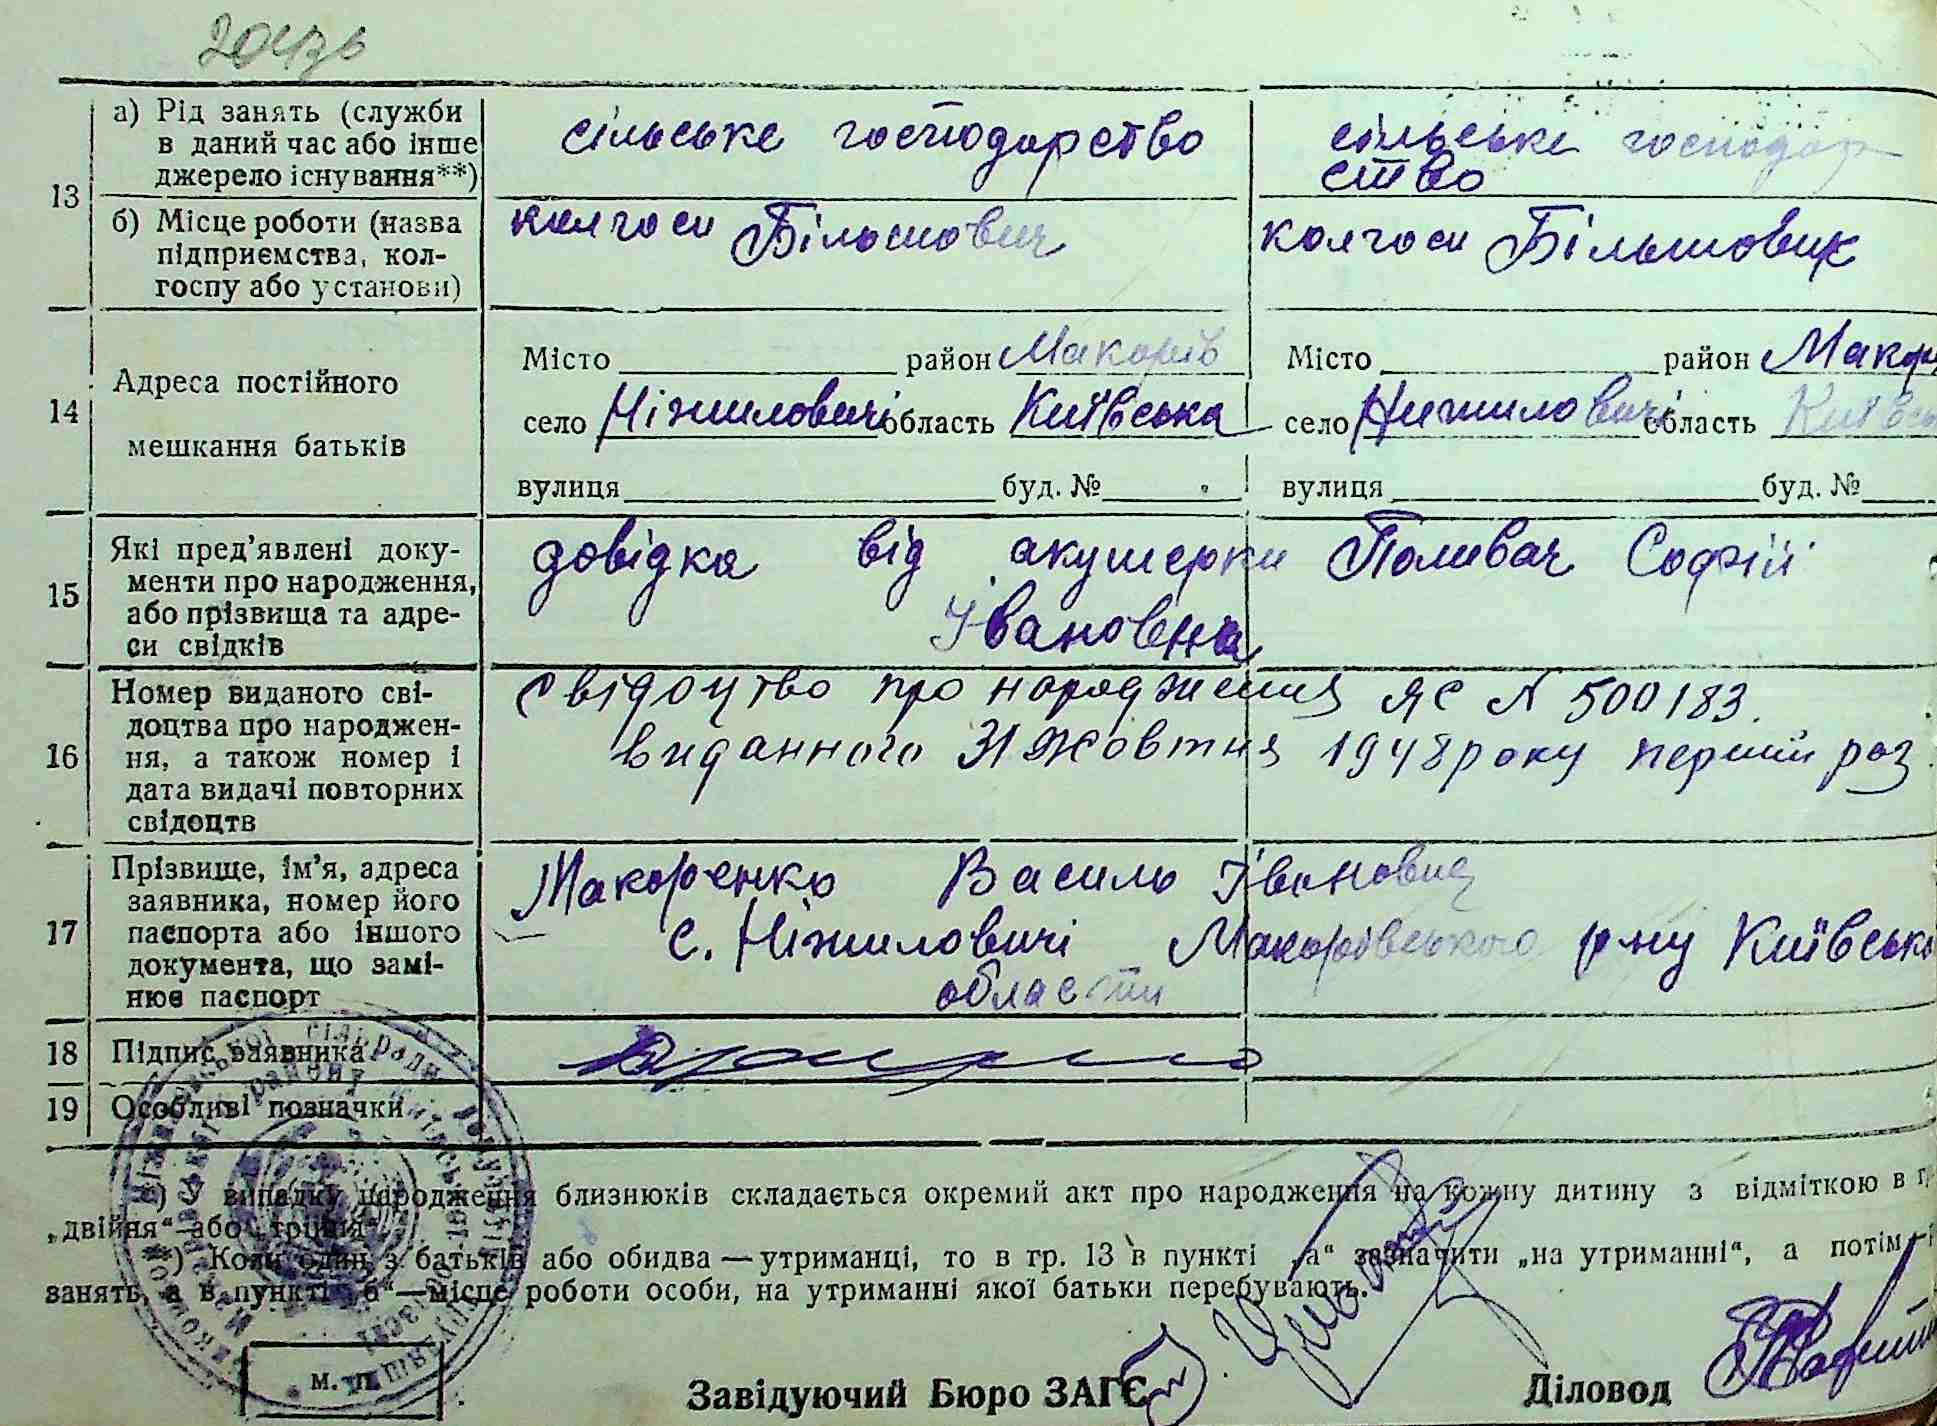 13
а) Рід занять (служби
в даний час або інше
джерело існування**)
сільське господарство
сільське господар
ство
б) Місце роботи (назва
підприємства, кол-
госпу або установи)
колгосп Більшовик
колгосп Більшовик
14
Адреса постійного
мешкання батьків
Місто район Макорів
село Ніжиловичі область Київська
вулиця буд. №
Місто район Макор
село Нижиловичі область Київсь
вулиця буд. №
15
Які пред'явлені доку-
менти про народження,
або прізвища та адре-
си свідків
довідка від акушерки Поливач Софії
Івановена
16
Номер виданого сві-
доцтва про народжен-
ня, а також номер і
дата видачі повторних
свідоцтв
свідоцтво про народження ЯС № 500183.
виданного 31 жовтня 1948 року перший раз
17
Прізвище, ім'я, адреса
заявника, номер його
паспорта або іншого
документа, що замі-
нює паспорт
Макоренко Василь Іванович
с. Ніжиловичі Макорівського р-ну Київсько
області
18
Підпис заявника
19
Особливі позначки
*) У випадку народження близнюків складається окремий акт про народження на кожну дитину з відміткою в г
„двійня“ або „трійня“.
**) Коли один з батьків або обидва — утриманці, то в гр. 13 в пункті „а“ зазначити „на утриманні“, а потім
занять, а в пункті „б“ — місце роботи особи, на утриманні якої батьки перебувають.
м. п.
Завідуючий Бюро ЗАГС
Діловод